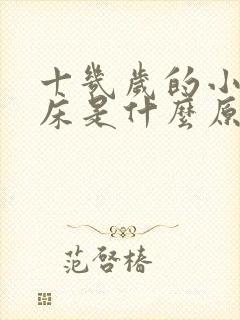 十幾歲的小
床是什麼原
范啓椿